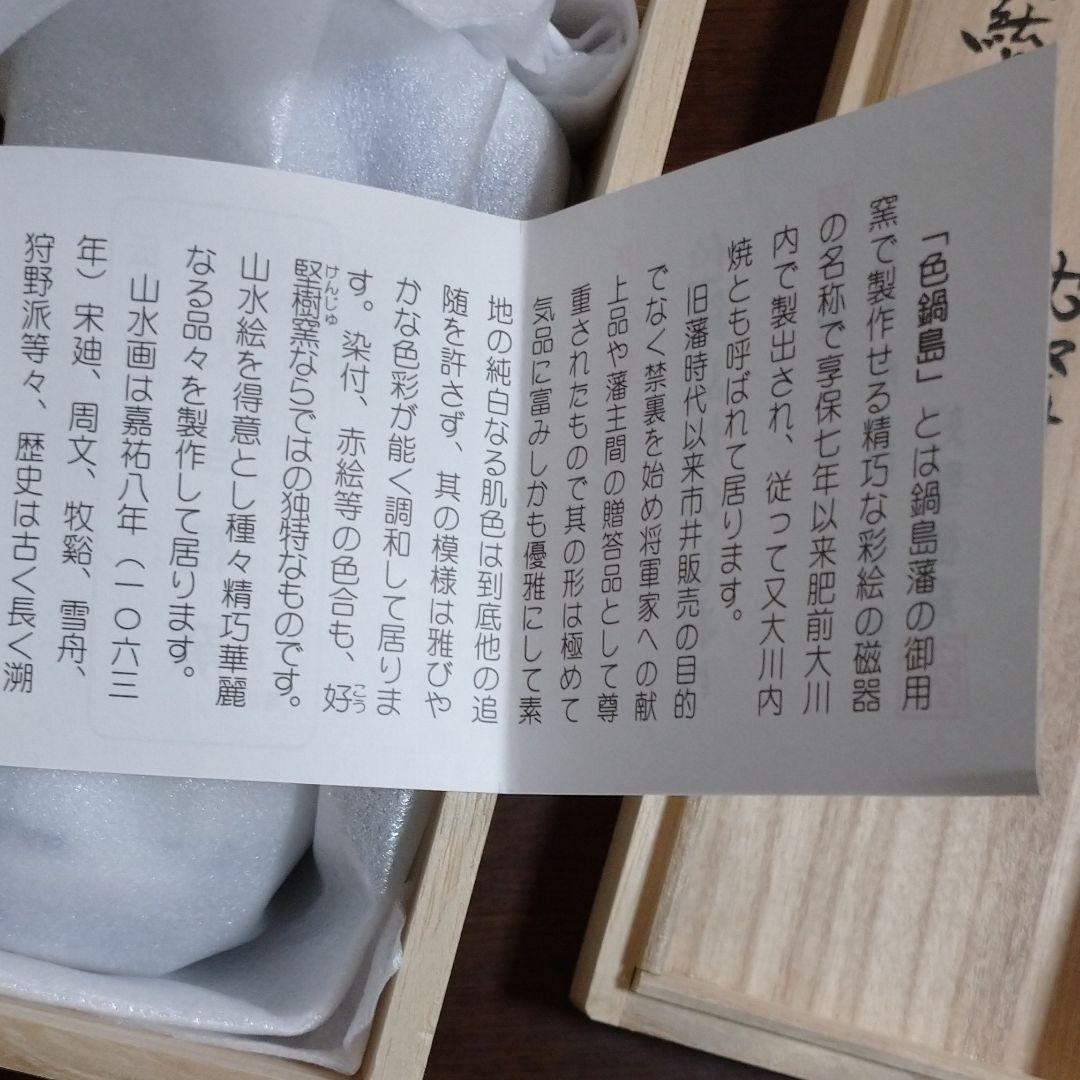 「色鍋島」とは鍋島藩の御用
窯で製作せる精巧な彩絵の磁器
の名称で享保七年以来肥前大川
内で製出され、従って又大川内
焼とも呼ばれて居ります。
旧藩時代以来市井販売の目的
でなく禁裏を始め将軍家への献
上品や藩主間の贈答品として尊
重されたもので其の形は極めて
気品に富みしかも優雅にして素
地の純白なる肌色は到底他の追
随を許さず、其の模様は雅びや
かな色彩が能く調和して居りま
す。染付、赤絵等の色合も、好
こう
堅樹窯ならではの独特なものです。
けんじゅ
山水絵を得意とし種々精巧華麗
なる品々を製作して居ります。
山水画は嘉祐八年（一〇六三
年）宋廸、周文、牧谿、雪舟、
狩野派等々、歴史は古く長く溯